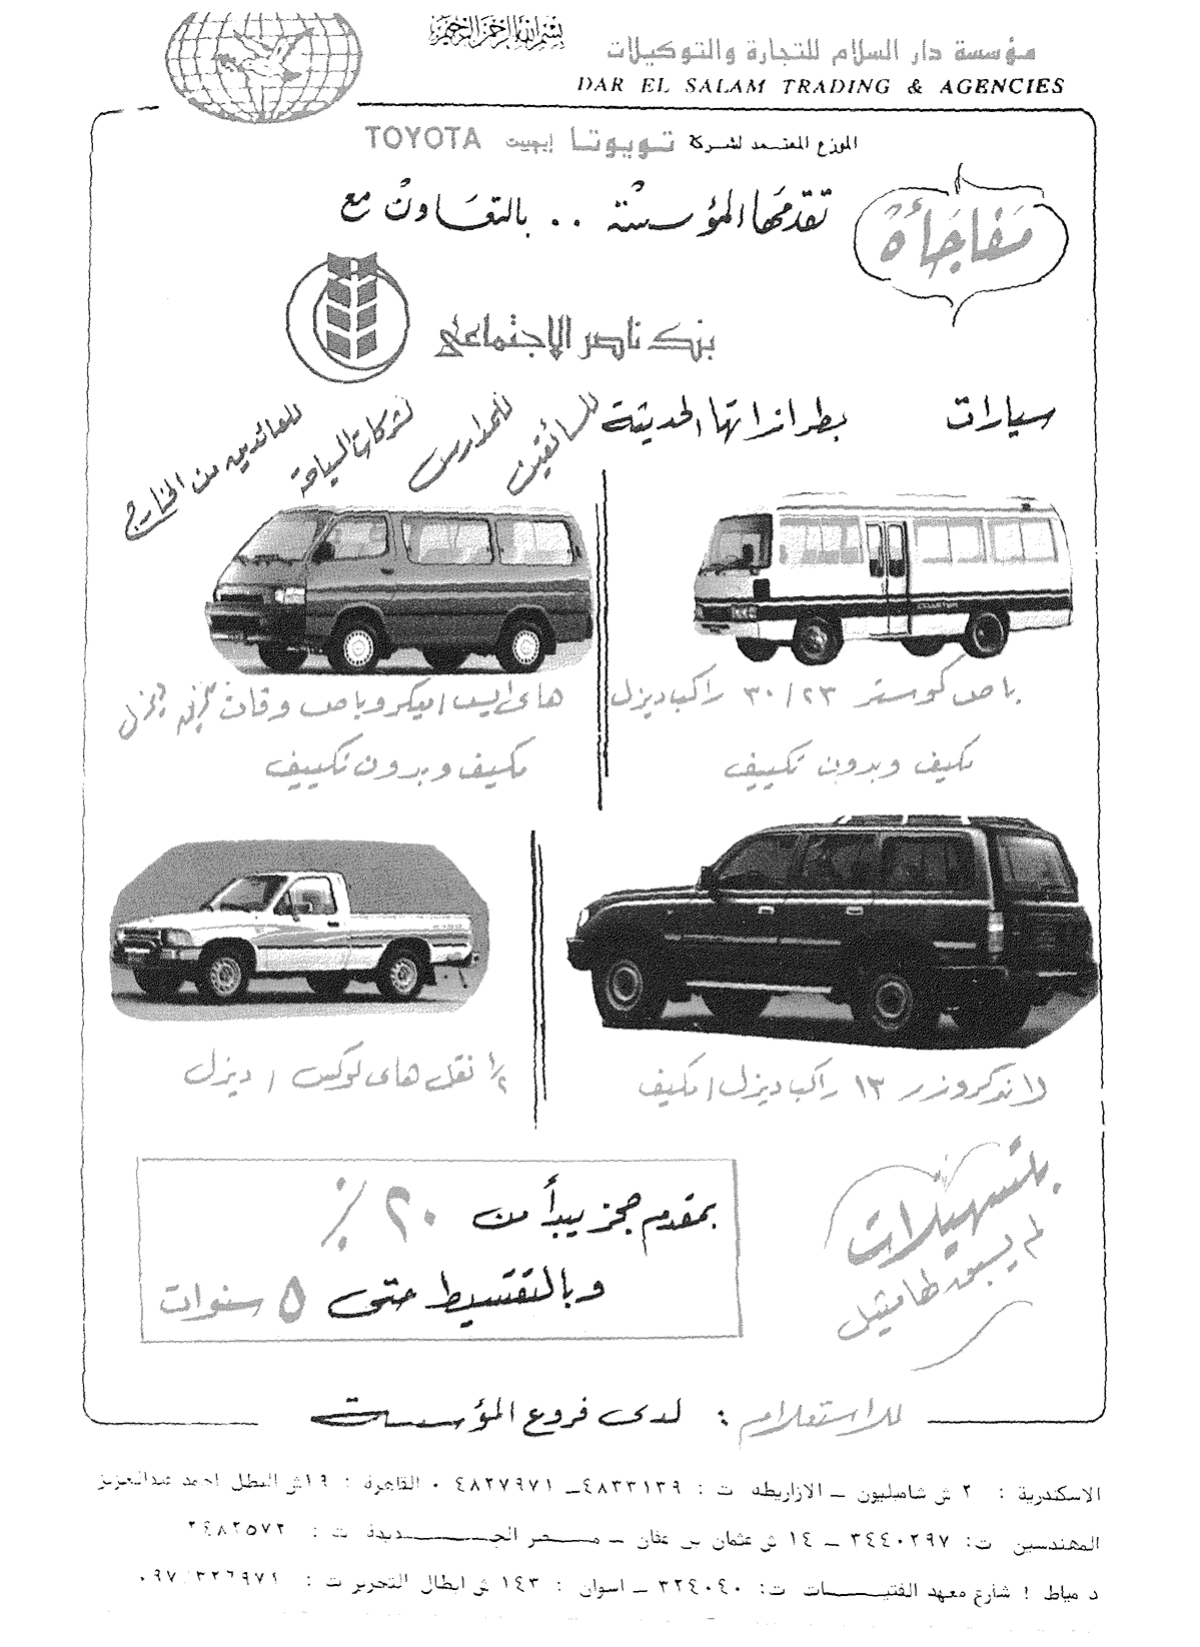 بسم الله الرحمن الرحيم
مؤسسة دار السلام للتجارة والتوكيلات
DAR EL SALAM TRADING & AGENCIES
الموزع المعتمد لشركة تويوتا إيجيبت TOYOTA
مفاجأة
تقدمها المؤسسة .. بالتعاون مع
بنك ناصر الاجتماعى
سيارات بطرازاتها الحديثة
للسائقين
للمدارس
لشركات السياحة
للعائدين من الخارج
باص كوستر ٣٠/٢٣ راكب ديزل
مكيف وبدون تكييف
هاى ايس / ميكروباص وفان
مكيف وبدون تكييف
لاندكروزر ١٣ راكب ديزل / مكيف
١/٢ نقل هاى لوكس / ديزل
بتسهيلات
لم يسبق لها مثيل
بمقدم حجز يبدأ من ٢٠٪
وبالتقسيط حتى ٥ سنوات
للاستعلام : لدى فروع المؤسسة
الاسكندرية : ٢ ش شامبليون – الازاريطه ت : ٤٨٣٣١٣٩ – ٤٨٢٧٩٧١ ٠ القاهرة : ١٩ ش البطل احمد عبدالعزيز
المهندسين ت: ٣٤٤٠٢٩٧ – ١٤ ش عثمان بن عفان – مصر الجديدة ت : ٢٤٨٢٥٧٢
دمياط ! شارع معهد الفتيات ت: ٣٢٤٠٤٠ – اسوان : ١٤٣ ش ابطال التحرير ت : ٠٩٧/٣٢٦٩٧١